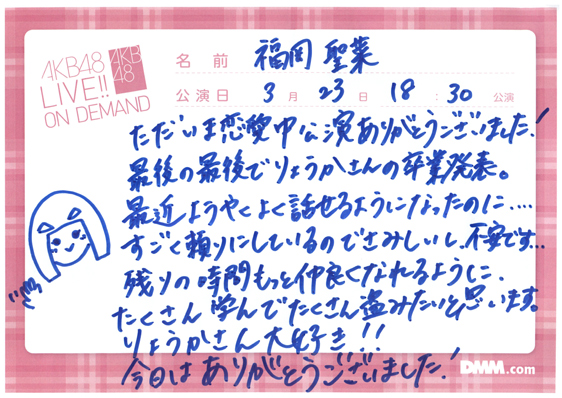 AKB48
LIVE!!
ON DEMAND
AKB
48
名前 福岡 聖菜
公演日 3月23日 18:30 公演
ただいま恋愛中公演ありがとうございました!
最後の最後でりょうかさんの卒業発表。
最近ようやくよく話せるようになったのに....
すごく頼りにしているのでさみしいし、不安です...
残りの時間もっと仲良くなれるように、
たくさん学んでたくさん盗みたいと思います。
りょうかさん大好き!!
今日はありがとうございました!
DMM.com